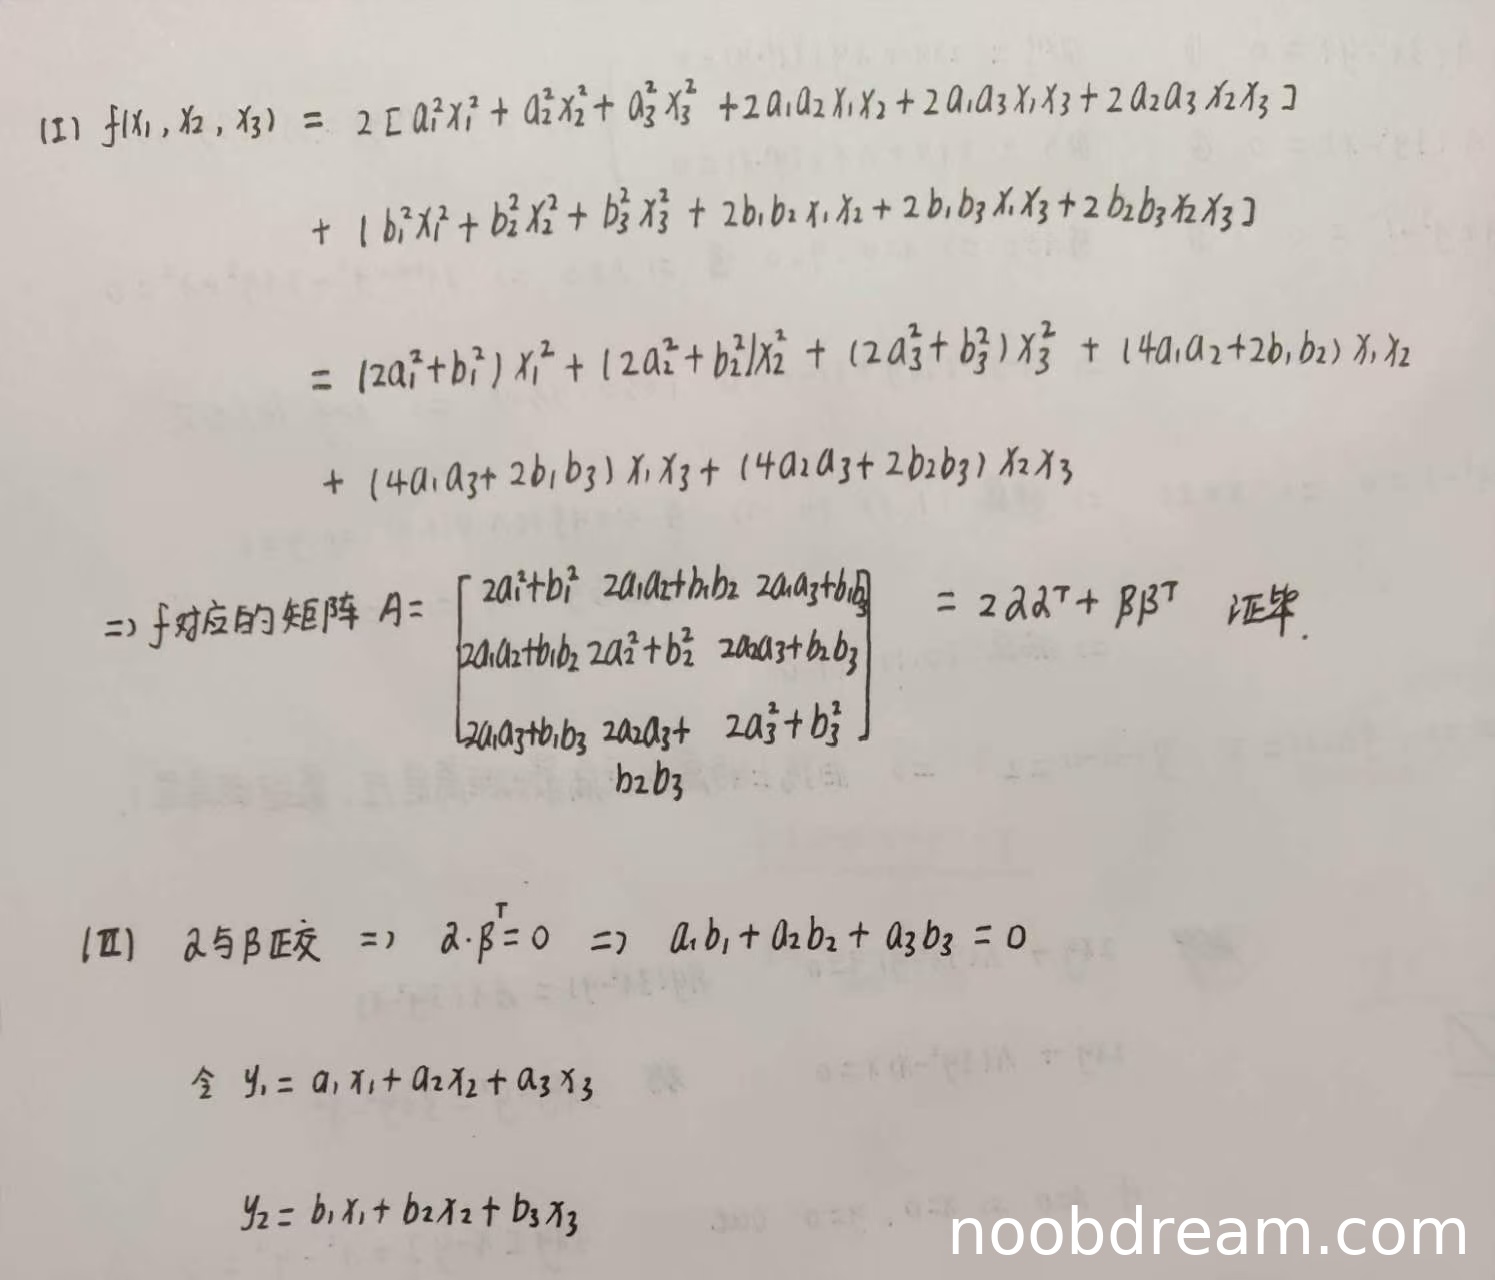 (I) f(x₁, x₂, x₃) = 2[a₁²x₁² + a₂²x₂² + a₃²x₃² + 2a₁a₂x₁x₂ + 2a₁a₃x₁x₃ + 2a₂a₃x₂x₃]
+ [b₁²x₁² + b₂²x₂² + b₃²x₃² + 2b₁b₂x₁x₂ + 2b₁b₃x₁x₃ + 2b₂b₃x₂x₃]
= (2a₁²+b₁²)x₁² + (2a₂²+b₂²)x₂² + (2a₃²+b₃²)x₃² + (4a₁a₂+2b₁b₂)x₁x₂
+ (4a₁a₃+2b₁b₃)x₁x₃ + (4a₂a₃+2b₂b₃)x₂x₃
=> f对应的矩阵 A= [2a₁²+b₁² 2a₁a₂+b₁b₂ 2a₁a₃+b₁b₃ = 2αα^T + ββ^T 证毕.
2a₁a₂+b₁b₂ 2a₂²+b₂² 2a₂a₃+b₂b₃
2a₁a₃+b₁b₃ 2a₂a₃+b₂b₃ 2a₃²+b₃²]
(II) α与β正交 => α·β^T=0 => a₁b₁+a₂b₂+a₃b₃=0
令 y₁ = a₁x₁+a₂x₂+a₃x₃
y₂ = b₁x₁+b₂x₂+b₃x₃
noobdream.com